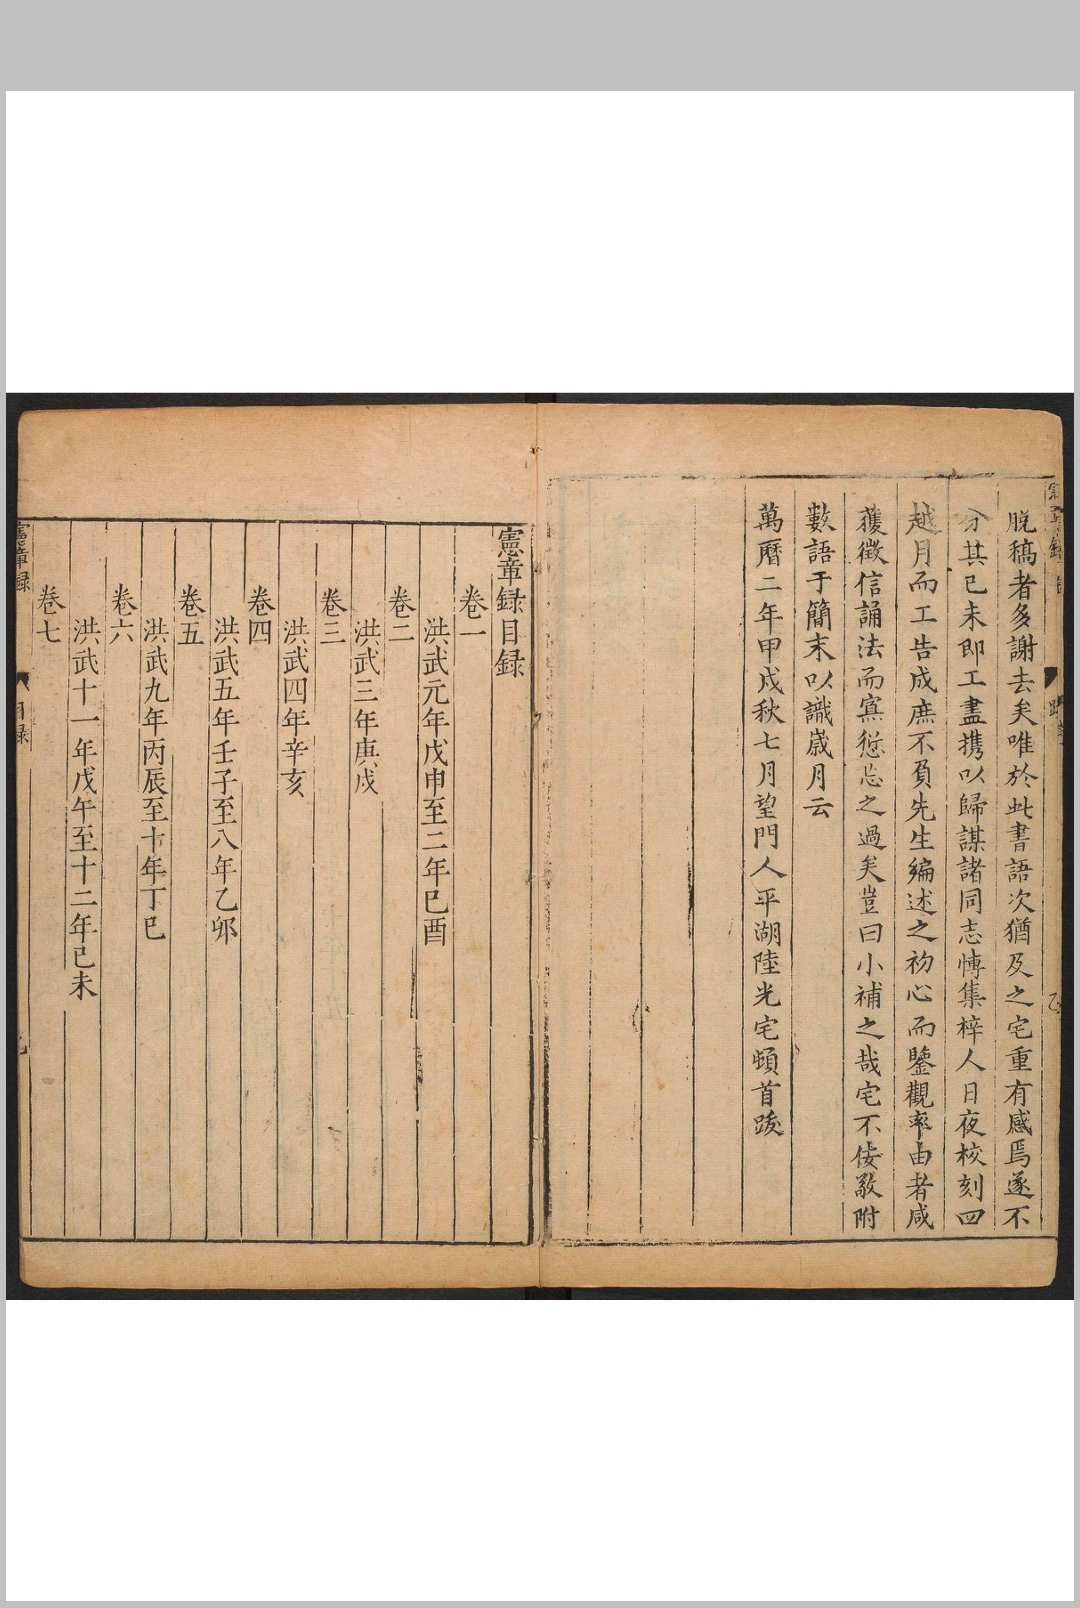 脫稿者多謝去矣唯於此書語次猶及之宅重有感焉遂不
分其已未即工盡携以歸謀諸同志愽集梓人日夜校刻四
越月而工告成庶不負先生編述之初心而鑒觀率由者咸
獲徵信誦法而寡愆忘之過矣豈曰小補之哉宅不佞敬附
數語于簡末以識歲月云
萬曆二年甲戌秋七月望門人平湖陸光宅頓首跋
憲章録目録
卷一
洪武元年戊申至二年已酉
卷二
洪武三年庚戌
卷三
洪武四年辛亥
卷四
洪武五年壬子至八年乙卯
卷五
洪武九年丙辰至十年丁巳
卷六
洪武十一年戊午至十二年已未
卷七
憲章録
目録